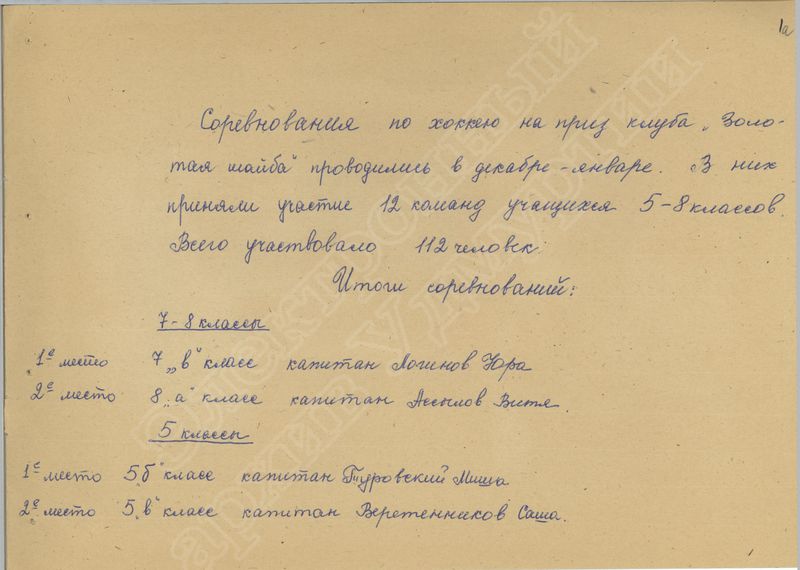 1а
Соревнования по хоккею на приз клуба „Золо-
тая шайба" проводились в декабре-январе. В них
приняли участие 12 команд учащихся 5-8 классов.
Всего участвовало 112 человек.
Итоги соревнований:
7-8 классы
1е место 7 „в" класс капитан Логинов Юра
2е место 8 „а" класс капитан Ассылов Витя.
5 классы
1е место 5 „б" класс капитан Туровский Миша
2е место 5 „в" класс капитан Веретенников Саша.
Электронный
архив Удмуртии